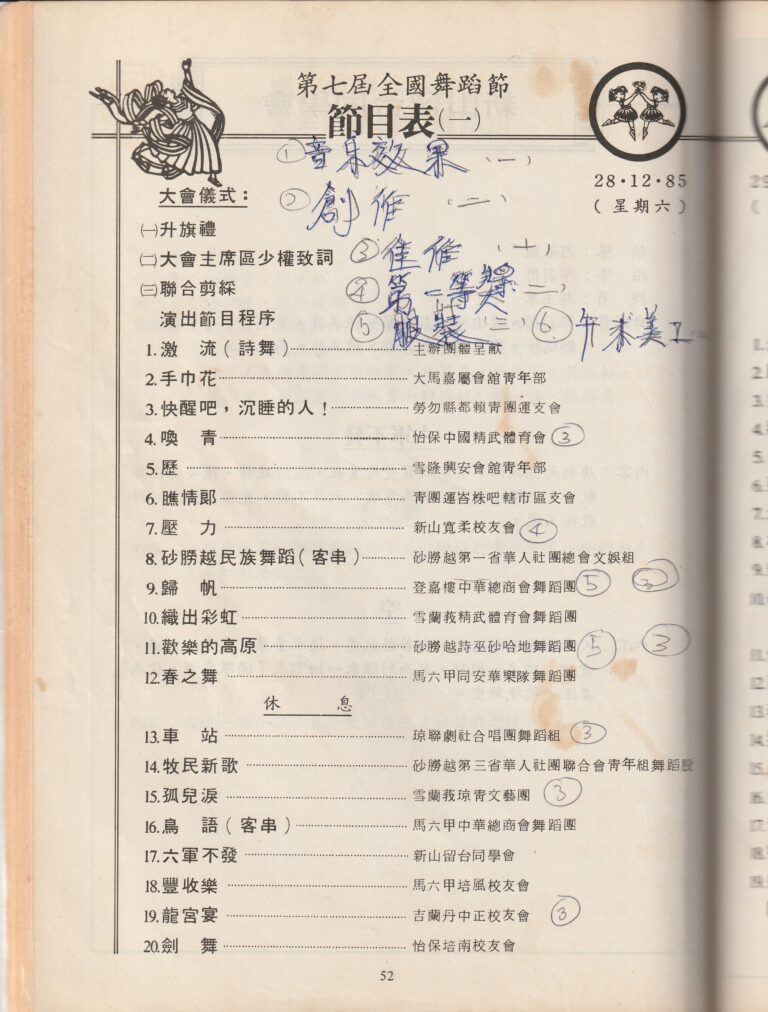 第七屆全國舞蹈節
節目表(一)
① 音乐效果 (一)
28·12·85
(星期六)
大會儀式：
② 創作 (二)
㈠升旗禮
㈡大會主席區少權致詞 ③ 佳作 (十)
㈢聯合剪綵 ④ 第一等奖 (二)
演出節目程序 ⑤ 服裝 (三) ⑥
1.激 流(詩舞) 主辦團體呈献
2.手巾花 大馬嘉屬會館靑年部
3.快醒吧，沉睡的人! 勞勿縣都賴靑團運支會
4.喚 靑 怡保中國精武體育會 ③
5.歷 雪隆興安會館靑年部
6.瞧情郞 靑團運峇株吧轄市區支會
7.壓 力 新山寬柔校友會 ④
8.砂勝越民族舞蹈(客串) 砂勝越第一省華人社團總會文娛組
9.歸 帆 登嘉樓中華總商會舞蹈團 ⑤ ③
10.織出彩虹 雪蘭莪精武體育會舞蹈團
11.歡樂的高原 砂勝越詩巫砂哈地舞蹈團 ⑤ ③
12.春之舞 馬六甲同安華樂隊舞蹈團
休 息
13.車 站 琼聯劇社合唱團舞蹈組 ③
14.牧民新歌 砂勝越第三省華人社團聯合會靑年組舞蹈股
15.孤兒淚 雪蘭莪琼靑文藝團 ③
16.鳥 語(客串) 馬六甲中華總商會舞蹈團
17.六軍不發 新山留台同學會
18.豐收樂 馬六甲培風校友會
19.龍宮宴 吉蘭丹中正校友會 ③
20.劍 舞 怡保培南校友會
52